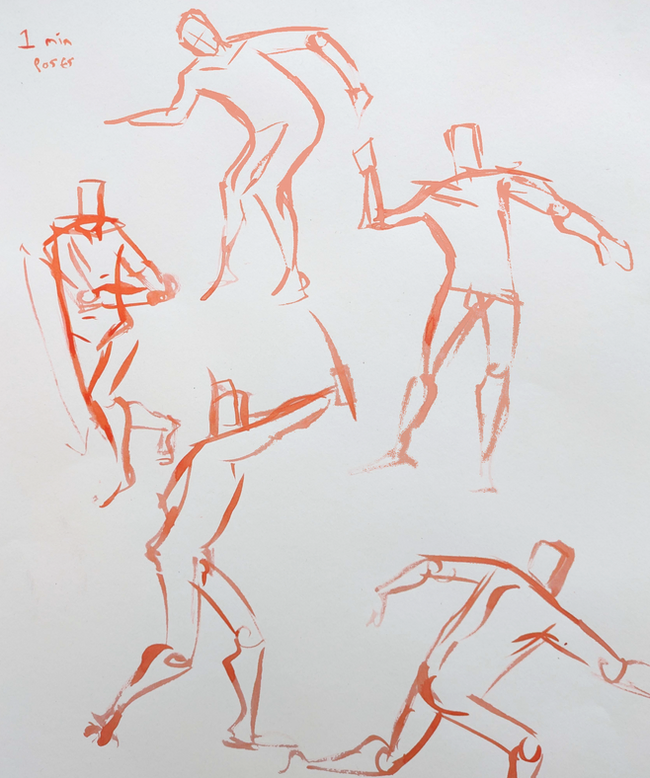 1 min
poses